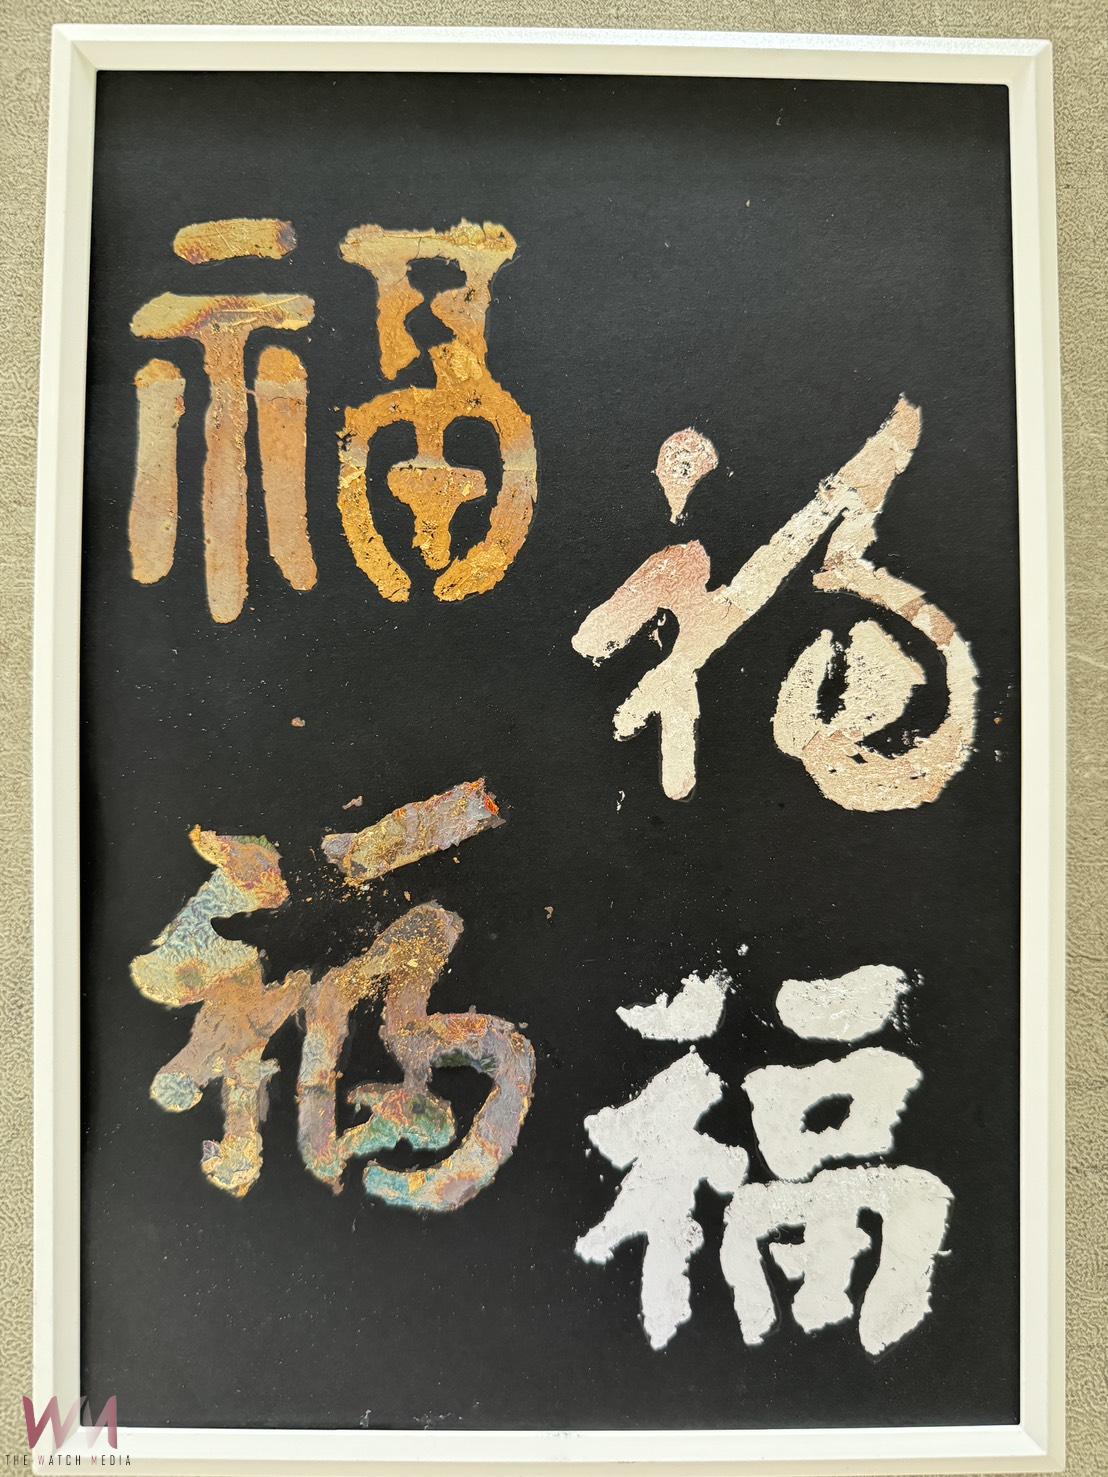 福
福
福
福
WM
THE WATCH MEDIA